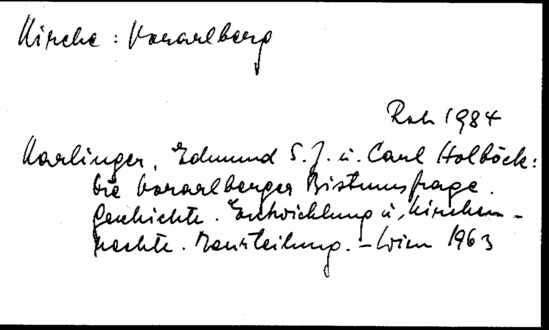 Kirche : Vorarlberg
Rath 1984
Karlinger, Edmund S.J. u. Carl Holböck:
Die Vorarlberger Bistumsfrage.
Geschichte. Entwicklung u. kirchen-
rechtl. Beurteilung. – Wien 1963